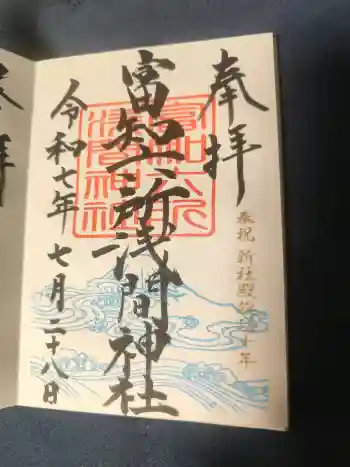 奉拝
奉祝 新社殿
十年
富知六所浅間神社
富知六所
浅間神社
令和七年 七月 二十八日
拝